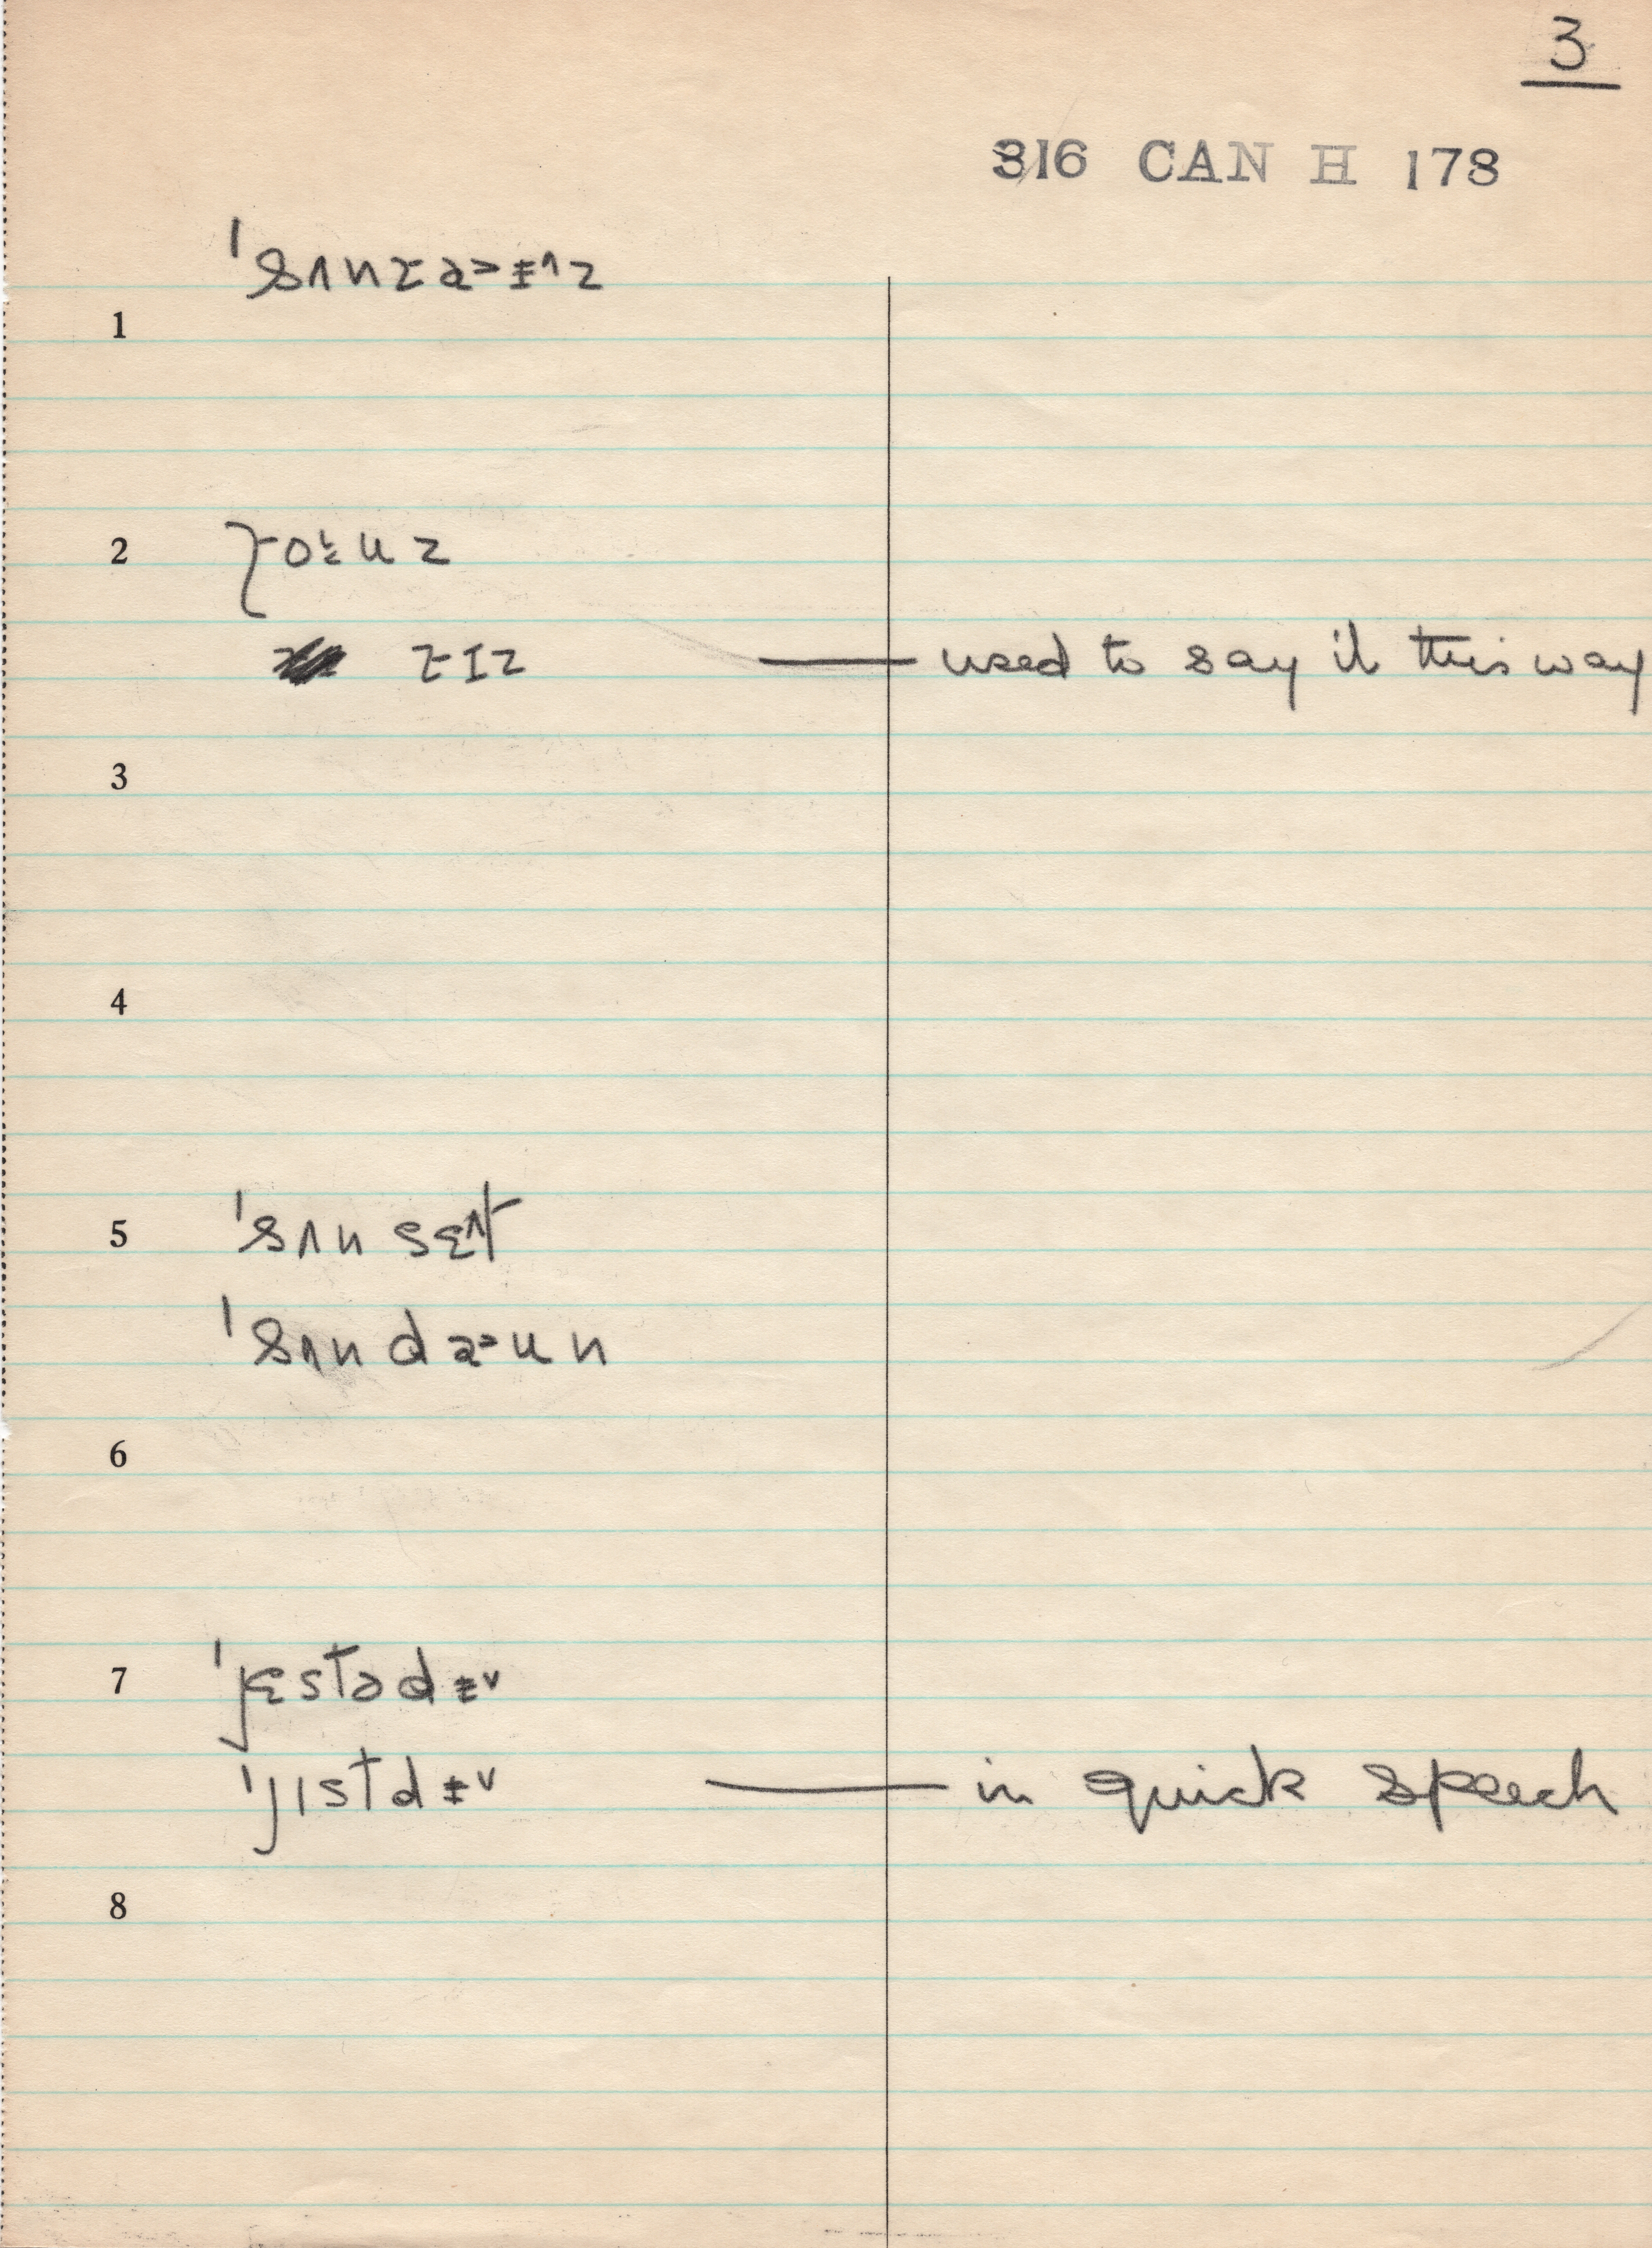 3
316 CAN H 178
ˈsʌnɹa˃ɨ^z
1
2 ɹoᵻuz
ɹɪz — used to say it this way
3
4
5 ˈsʌnsɛ^t
ˈsʌnda˃un
6
7 ˈjɛstədɨ˅
ˈjɪstdɨ˅ — in quick speech
8